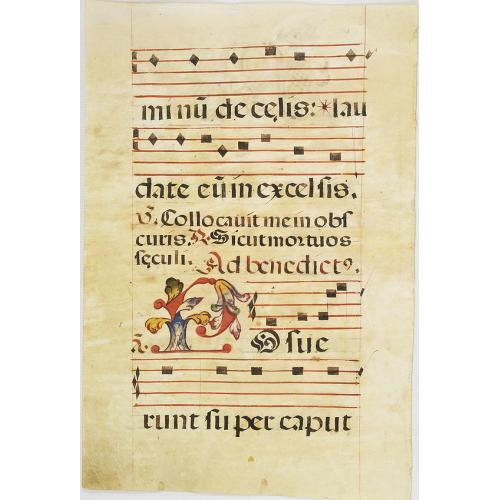 minū de cęlis: *lau
date eū in excelsis.
V̄. Collocavit me in obs
curis. R̄. Sicut mortuos
sęculi. Ad benedictꝰ.
A. Posue
runt super caput